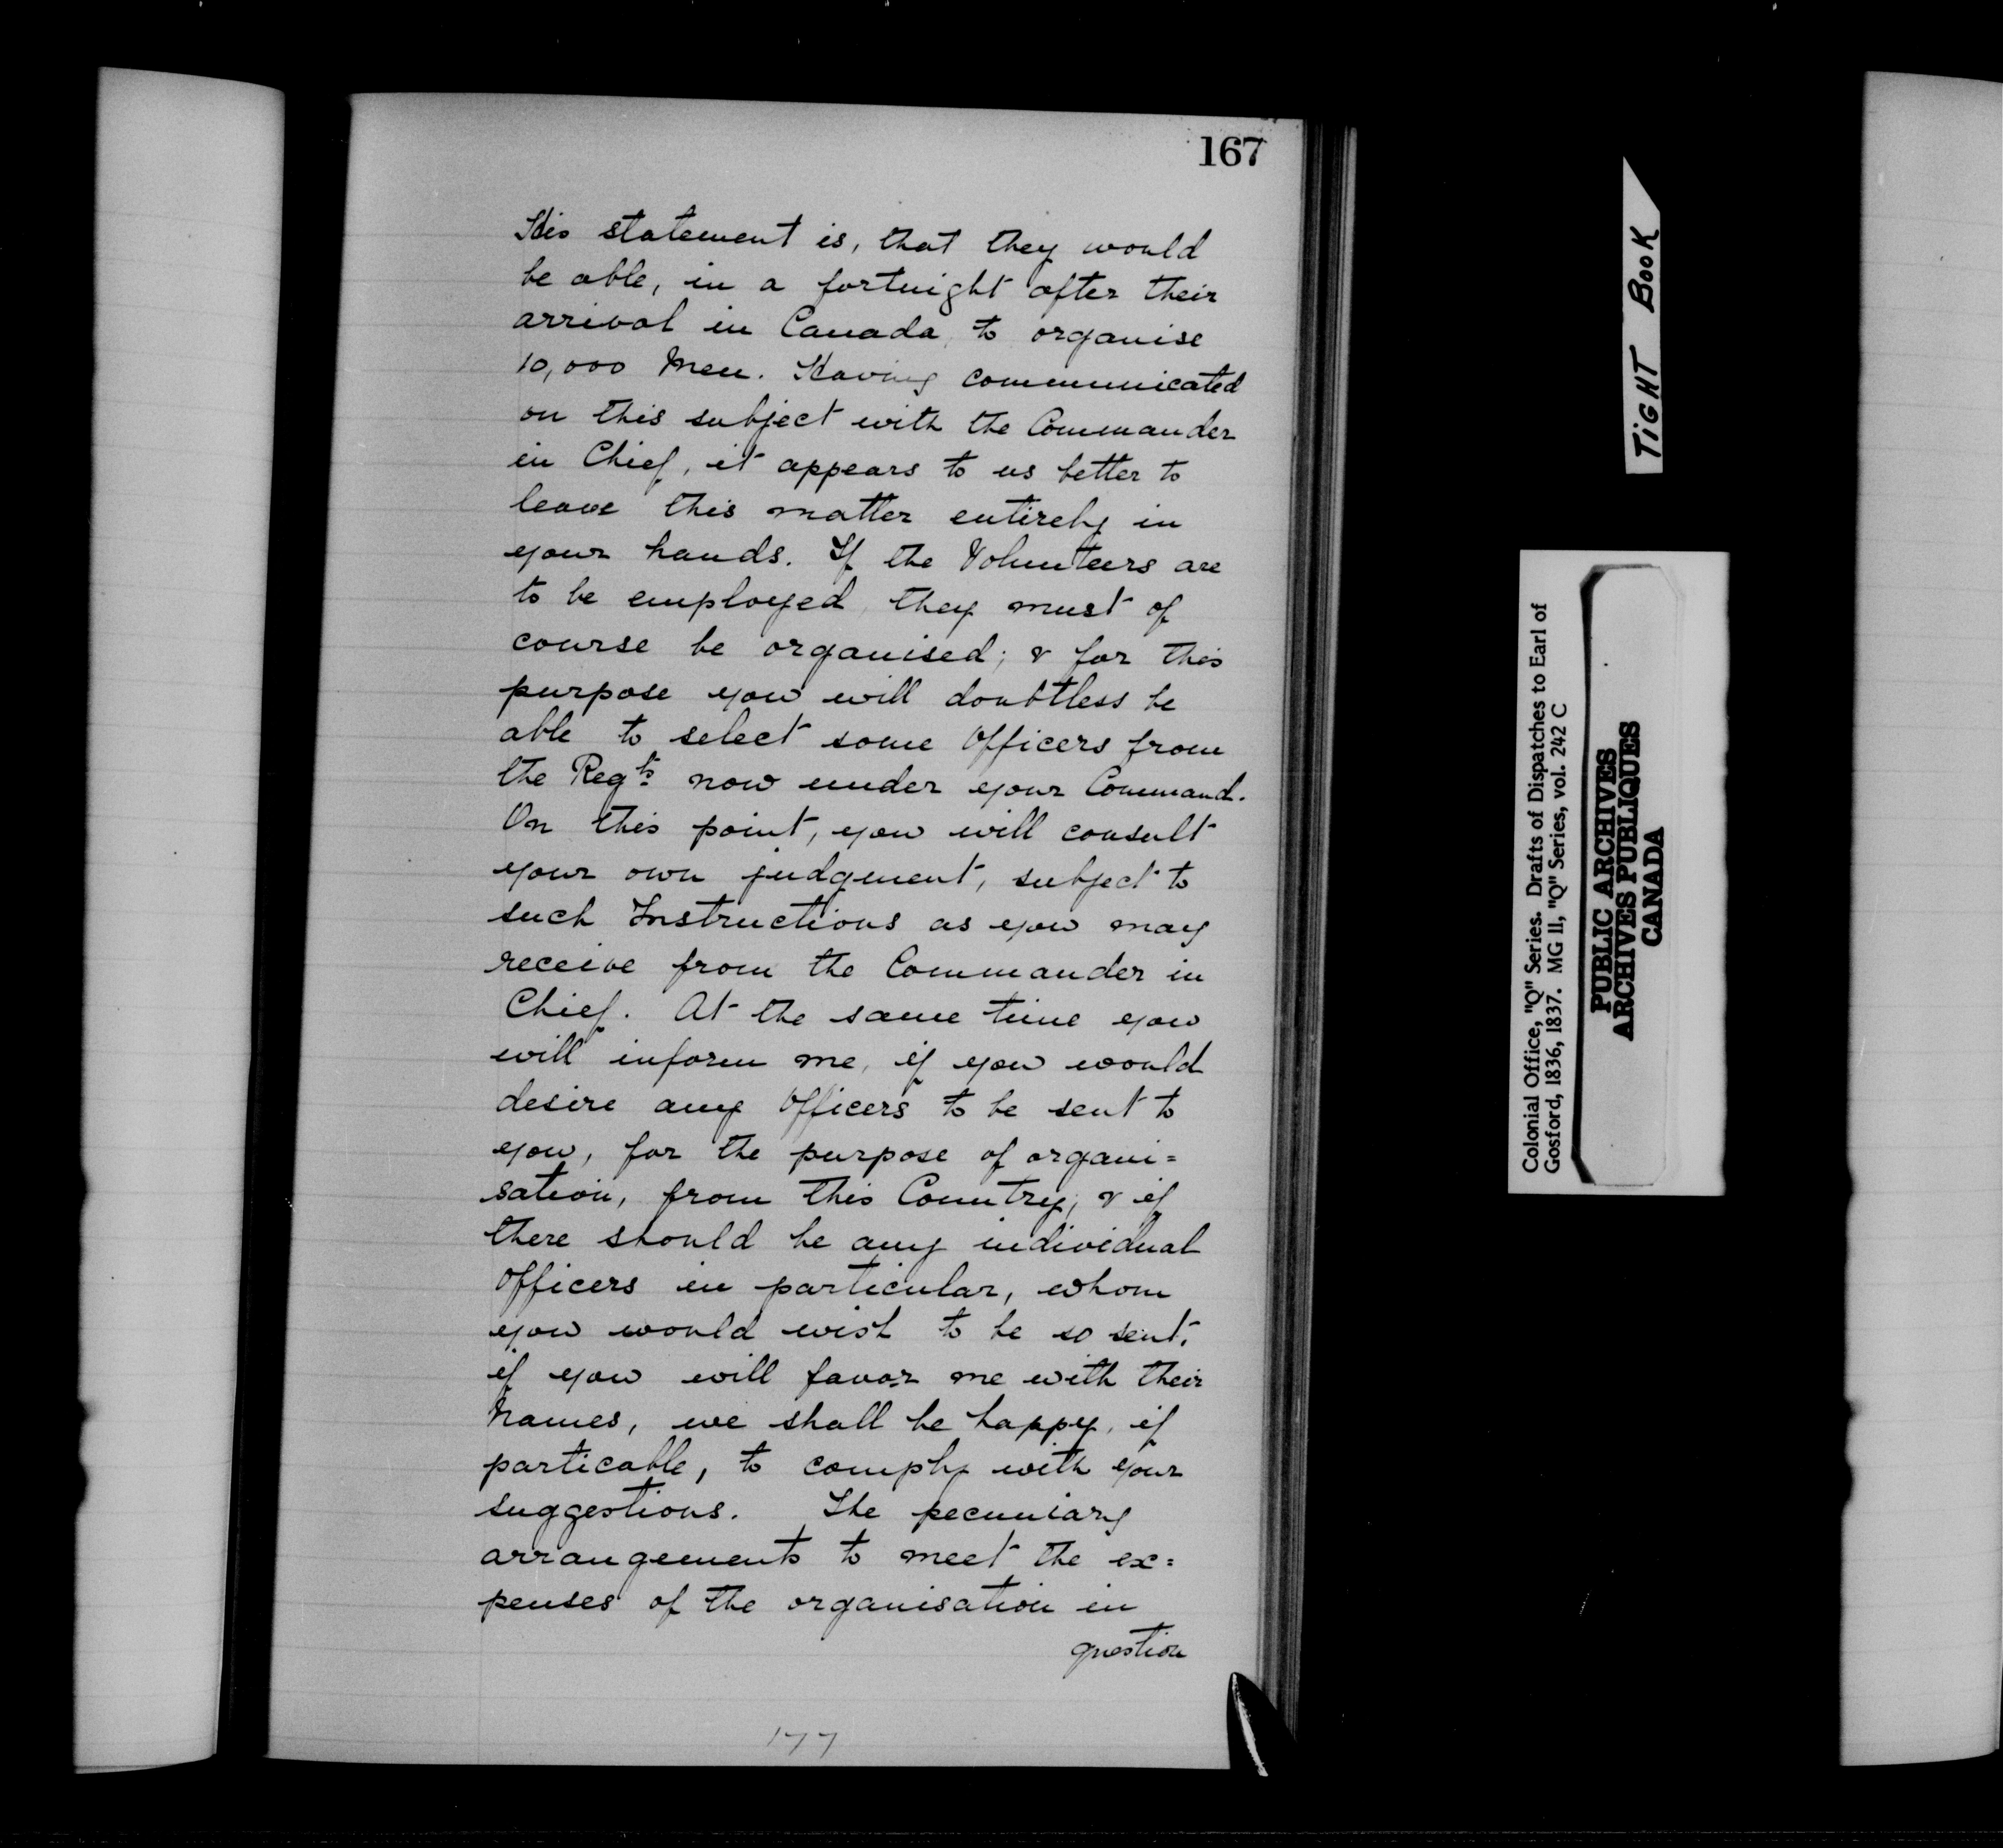 167
His statement is, that they would
be able, in a fortnight after their
arrival in Canada, to organise
10,000 Men. Having communicated
on this subject with the Commander
in Chief, it appears to us better to
leave this matter entirely in
your hands. If the Volunteers are
to be employed, they must of
course be organised; & for this
purpose you will doubtless be
able to select some Officers from
the Regts now under your Command.
On this point, you will consult
your own judgement, subject to
such Instructions as you may
receive from the Commander in
Chief. At the same time you
will inform me, if you would
desire any Officers to be sent to
you, for the purpose of organi=
sation, from this Country; & if
there should be any individual
Officers in particular, whom
you would wish to be so sent,
if you will favor me with their
Names, we shall be happy, if
particable, to comply with your
suggestions. The pecuniary
arrangements to meet the ex=
penses of the organisation in
question
177
TIGHT BOOK
Colonial Office, "Q" Series. Drafts of Dispatches to Earl of
Gosford, 1836, 1837. MG 11, "Q" Series, vol. 242 C
PUBLIC ARCHIVES
ARCHIVES PUBLIQUES
CANADA